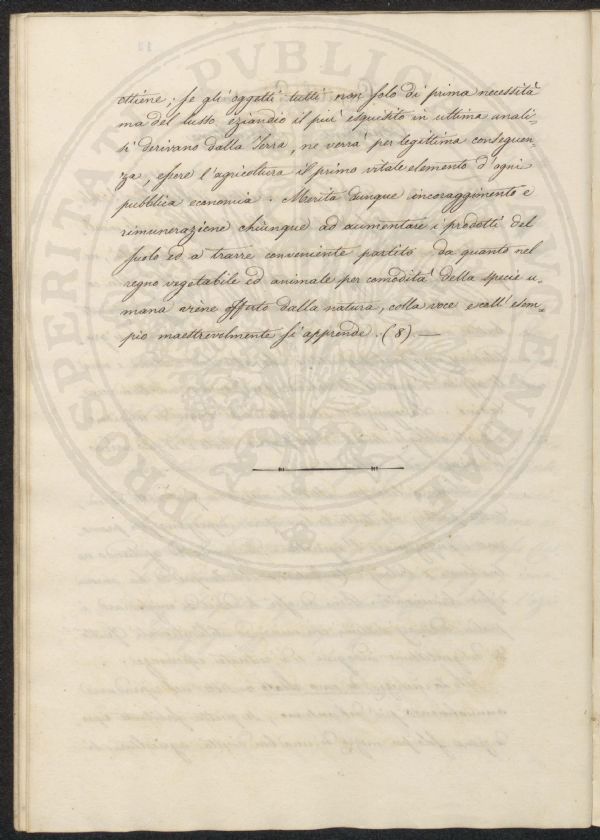 ottiene; se gli oggetti tutti non solo di prima necessità
ma del lusso eziandio il più esquisito in ultima anali-
si derivano dalla Terra, ne verrà per legittima conseguen-
za, essere l'agricoltura il primo vitale elemento d'ogni
pubblica economia. Merita dunque incoraggimento e
rimunerazione chiunque ad aumentare i prodotti del
suolo ed a trarre conveniente partito da quanto nel
regno vegetabile ed animale per comodità della specie u-
mana viene offerto dalla natura, colla voce e coll'esem-
pio maestrevolmente si apprende. (8) —
PROSPERITATI PVBLIC AVGENDAE